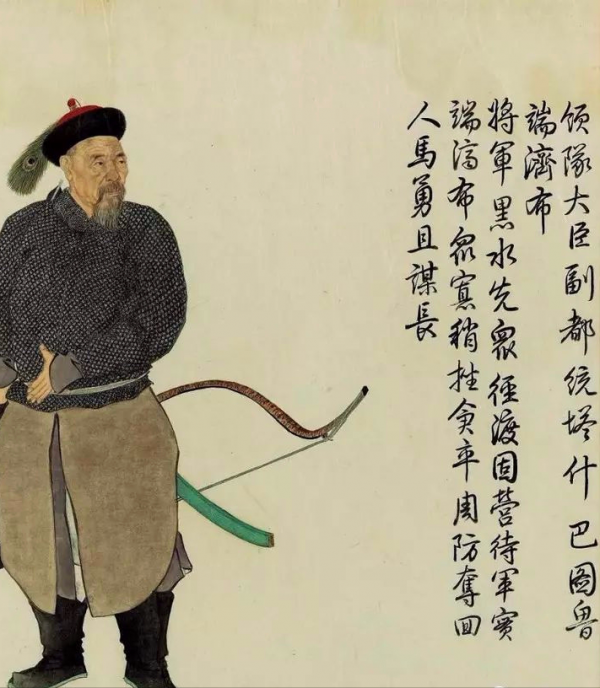 領隊大臣副都統塔什巴圖魯
端濟布
將軍黑水先眾徑渡固營待軍實
端濟布眾寡稍挫卒周防奪回
人馬勇且謀長